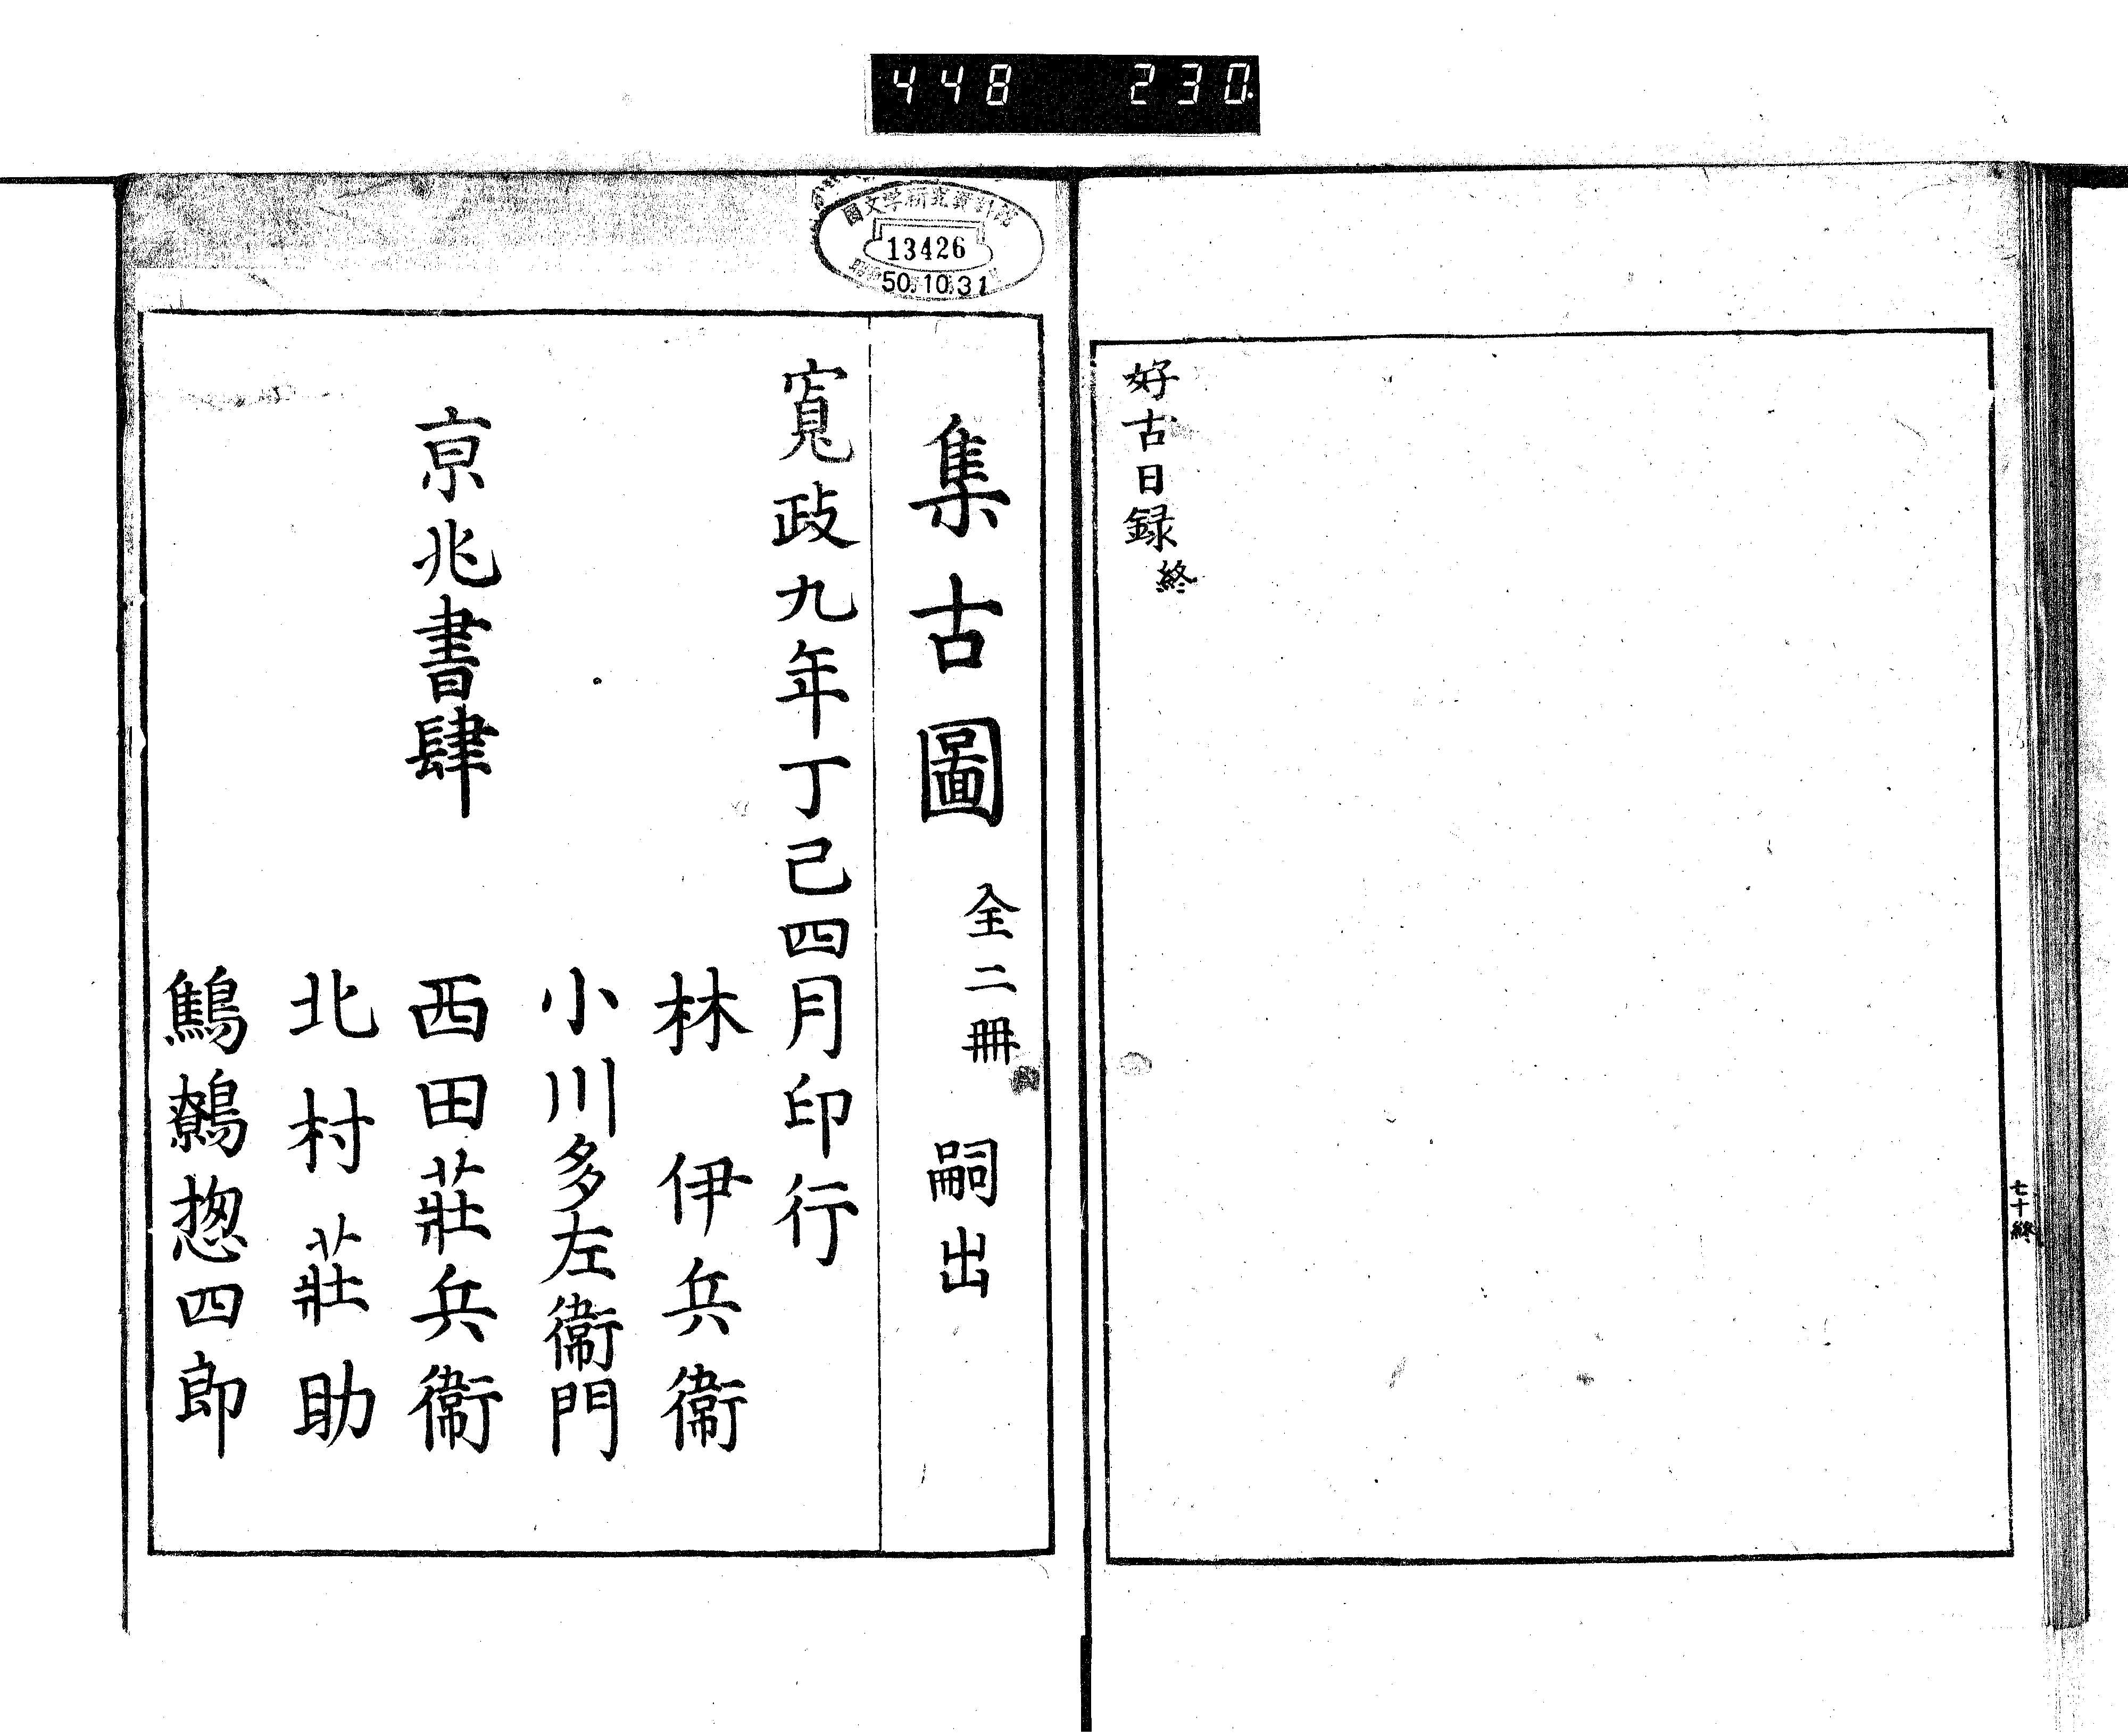 448 230
好古日録終
七十終
國文学研究資料館
13426
50.10.31
集古圖 全二冊 嗣出
寬政九年丁巳四月印行
京兆書肆
林伊兵衞
小川多左衞門
西田莊兵衞
北村莊助
鷦鷯惣四郎